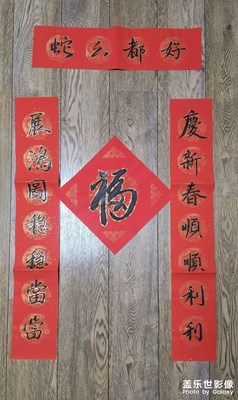 蛇么都好
慶新春順順利利
展鴻圖穩穩當當
福
盖乐世影像
Photo by Galaxy